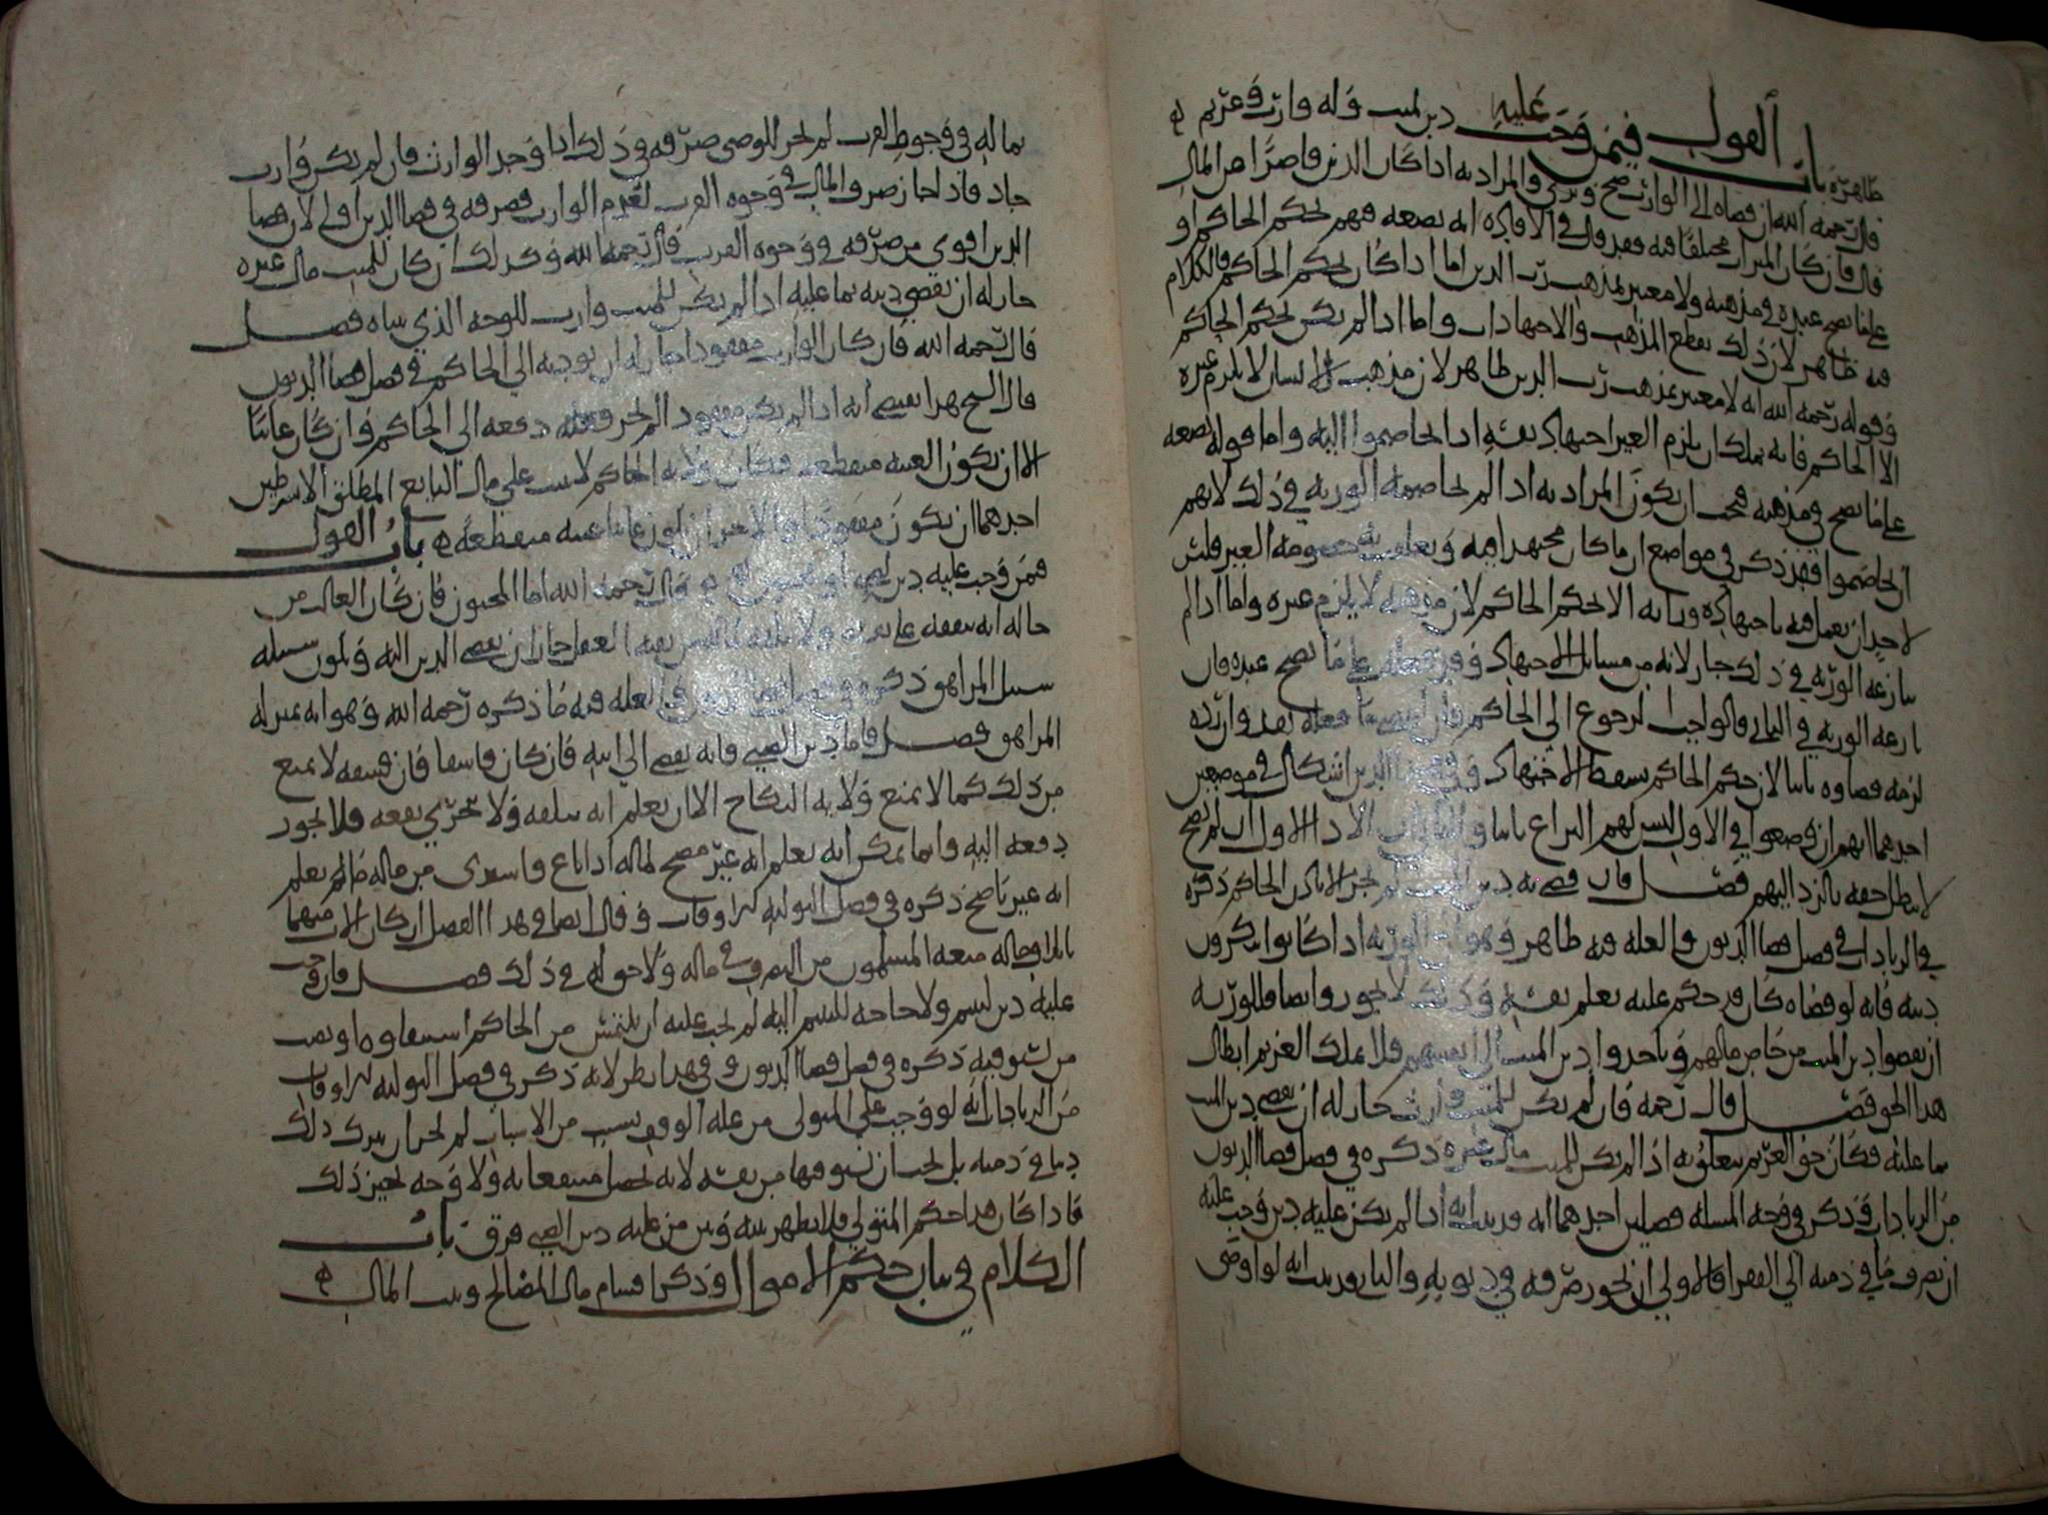 ظاهرة باب القول فيمن وجب عليه دين لميت وله وارث وغريم
قال رحمه الله ان قضاه الى الوارث صح وبرئ والمراد به اذا كان الدين قاصرا من المال
قال فان كان الميراث مختلفا فيه فقد قال في الافادة انه يضعه فيهم بحكم الحاكم او
على ما يصح عنده في مذهبه ولا معتبر بمذهب رب الدين اما اذا كان بحكم الحاكم فالكلام
فيه ظاهر لان ذلك يقطع المذهب والاجتهادات واما اذا لم يكن بحكم الحاكم
وقوله رحمه الله انه لا معتبر بمذهب رب الدين ظاهر لان مذهب الانسان لا يلزم غيره
الا الحاكم فانه يملك ان يلزم الغير اجتهاد نفسه اذا تخاصموا اليه واما قوله يضعه
على ما يصح في مذهبه فيجب ان يكون المراد به اذا لم تخاصمه الورثة في ذلك لانهم
ان خاصموا فقد ذكر في مواضع ان ما كان مجتهدا فيه وتعلقت به خصومة الغير فليس
لاحد ان يعمل فيه باجتهاده ورأيه الا بحكم الحاكم لان مذهبه لا يلزم غيره واما اذا لم
ينازعه الورثة في ذلك جاز لانه من مسائل الاجتهاد وقد فعله على ما يصح عنده فان
نازعه الورثة في الثاني فالواجب الرجوع الى الحاكم فان
لزمه قضاوه ثانيا لان حكم الحاكم يسقط الاجتهاد وفي هذا الدين اشكال في موضعين
احدهما انهم ان وضعوا في الاول ليس لهم النزاع ثانيا والثاني ان الاداء الاول ان لم يصح
لا يبطل حقه بالرد اليهم فصل فان قضى به دين الميت لم يجز الا باذن الحاكم ذكره
في الزيادات في فصل قضاء الديون والعلة فيه ظاهر وهو ان الورثة اذا كانوا منكرون
دينه فانه لو قضاه كان قد حكم عليه بعلم نفسه وذلك لا يجوز وايضا فللورثة
ان يقضوا دين الميت من خاص مالهم وياخذوا دين الميت الى انفسهم فلا يملك الغريم ابطال
هذا الحق فصل قال رحمه فان لم يكن للميت وارث جاز له ان يقضي دين الميت
بما عليه فكان حق الغريم متعلق به اذا لم يكن للميت مال غيره ذكره في فصل قضاء الديون
من الزيادات وذكر في وجه المسألة فصلين احدهما انه قد ثبت انه اذا لم يكن عليه دين وجب عليه
ان يصرف ما في ذمته الى الفقراء فالاولى ان يجوز صرفه في ديونه والثاني قد ثبت انه لو اوصى
بماله في وجوه القرب لم يجز للوصي صرفه في ذلك اذا وجد الوارث فان لم يكن وارث
جاز فاذا جاز صرف المال في وجوه القرب لعدم الوارث فصرفه في قضاء الدين اولى لان قضاء
الدين اقوى من صرفه في وجوه القرب قال رحمه الله وكذلك ان كان للميت مال غيره
جاز له ان يقضي دينه بما عليه اذا لم يكن للميت وارث للوجه الذي بيناه فصل
قال رحمه الله فان كان الوارث مفقودا جاز له ان يوديه الى الحاكم في فصل قضاء الديون
قال الشيخ هذا يقتضي انه اذا لم يكن مفقودا لم يجز دفعه الى الحاكم وان كان غائبا
الا ان يكون الغيبة منقطعة فكان ولاية الحاكم لا تثبت على مال البائع المطلق الا بشرطين
احدهما ان يكون مفقودا والاخر ان يكون غائبا غيبة منقطعة باب القول
فيمن وجب عليه دين لصبي او مجنون قال رحمه الله اما المجنون فان كان الغالب من
حاله انه ينفقه على نفسه ولا يتلفه جاز ان يقضي الدين اليه ويكون سبيله
سبيل المراهق ذكره في فصل قضاء الديون والعلة فيه ما ذكره رحمه الله وهو انه بمنزلة
المراهق فصل فاما دين الصبي فانه يقضي الى ابيه فان كان فاسقا فان فسقه لا يمنع
من ذلك كما لا يمنع ولاية النكاح الا ان يعلم انه يتلفه ولا يتحرى نفعه فلا يجوز
دفعه اليه وانما يمكن انه يعلم انه غير مصلح لماله اذا باع واشترى من ماله فما لم يعلم
انه غير ناصح ذكره في فصل التولية وقال ايضا في هذا الفصل ان كان الاب متهما
منعه المسلمون من التصرف في ماله ولا حق له في ذلك فصل فان وجب
عليه دين ليتيم ولا حاجة لليتيم اليه لم يجب عليه ان يلتمس من الحاكم استيفاوه او نصب
من يستوفيه ذكره في فصل قضاء الديون وفي هذا نظر لانه ذكر في فصل التولية
من الزيادات انه لو وجب على المتولي من غلة الوقف بسبب من الاسباب لم يجز ان يترك ذلك
دينا في ذمته بل يجب ان يستوفيها من نفسه لانه يحصل منتفعا به ولا وجه يجيز ذلك
فاذا كان هذا حكم المتولي فلا يظهر بينه وبين من عليه دين الصبي فرق باب
الكلام في بيان حكم الاموال وذكر اقسام مال المصالح وبيت المال